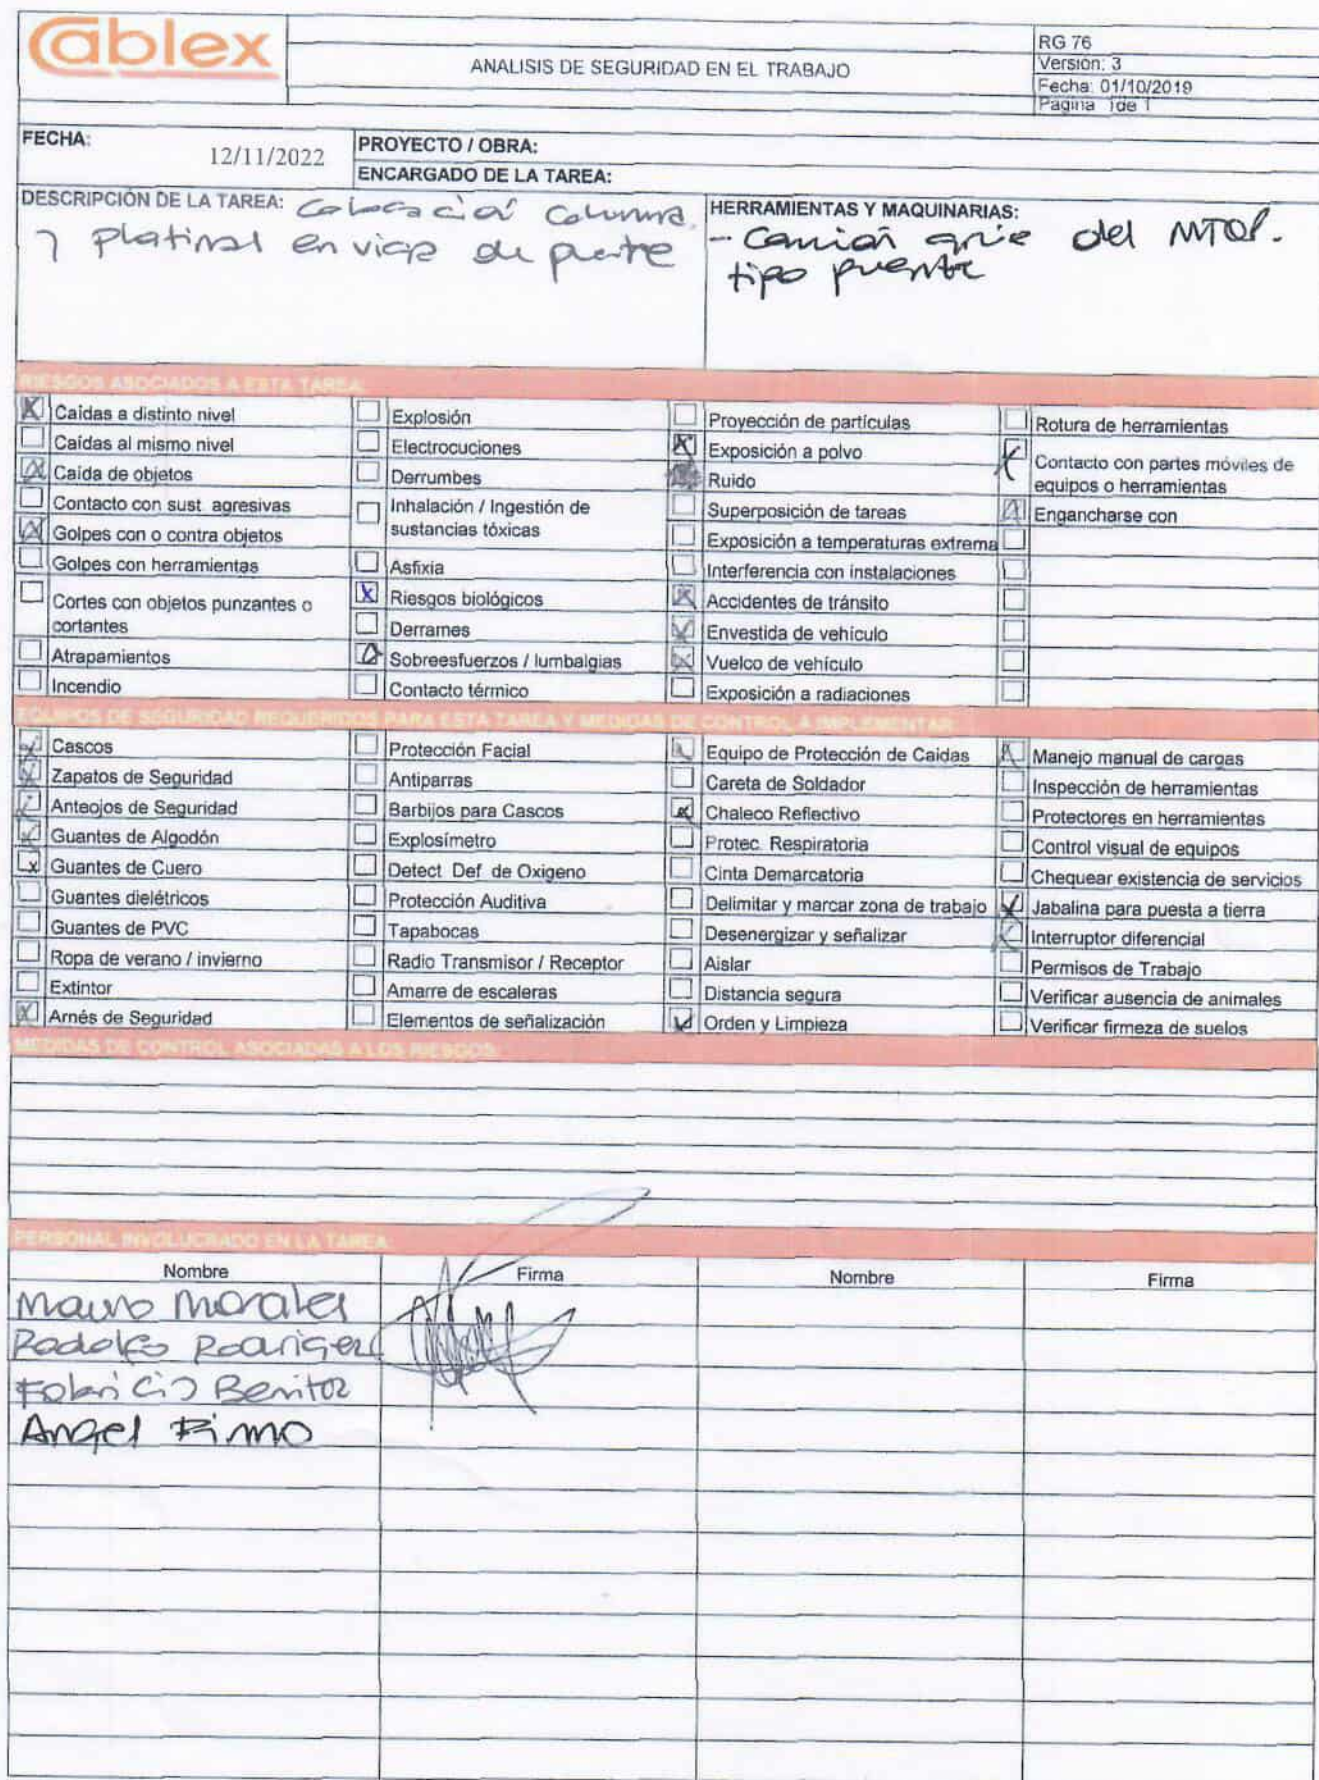 Cablex
ANALISIS DE SEGURIDAD EN EL TRABAJO
RG 76
Versión: 3
Fecha: 01/10/2019
Pagina 1de 1
FECHA:
12/11/2022
PROYECTO / OBRA:
ENCARGADO DE LA TAREA:
DESCRIPCIÓN DE LA TAREA: Colocación Columna
y platinas en viga de puente
HERRAMIENTAS Y MAQUINARIAS:
- Camión grúa del MTOP.
tipo puente
RIESGOS ASOCIADOS A ESTA TAREA:
Caídas a distinto nivel
Caídas al mismo nivel
Caída de objetos
Contacto con sust agresivas
Golpes con o contra objetos
Golpes con herramientas
Cortes con objetos punzantes o
cortantes
Atrapamientos
Incendio
Explosión
Electrocuciones
Derrumbes
Inhalación / Ingestión de
sustancias tóxicas
Asfixia
Riesgos biológicos
Derrames
Sobreesfuerzos / lumbalgias
Contacto térmico
Proyección de partículas
Exposición a polvo
Ruido
Superposición de tareas
Exposición a temperaturas extrema
Interferencia con instalaciones
Accidentes de tránsito
Envestida de vehículo
Vuelco de vehículo
Exposición a radiaciones
Rotura de herramientas
Contacto con partes móviles de
equipos o herramientas
Engancharse con
EQUIPOS DE SEGURIDAD REQUERIDOS PARA ESTA TAREA Y MEDIDAS DE CONTROL A IMPLEMENTAR:
Cascos
Zapatos de Seguridad
Anteojos de Seguridad
Guantes de Algodón
Guantes de Cuero
Guantes dielétricos
Guantes de PVC
Ropa de verano / invierno
Extintor
Arnés de Seguridad
Protección Facial
Antiparras
Barbijos para Cascos
Explosímetro
Detect Def de Oxigeno
Protección Auditiva
Tapabocas
Radio Transmisor / Receptor
Amarre de escaleras
Elementos de señalización
Equipo de Protección de Caidas
Careta de Soldador
Chaleco Reflectivo
Protec. Respiratoria
Cinta Demarcatoria
Delimitar y marcar zona de trabajo
Desenergizar y señalizar
Aislar
Distancia segura
Orden y Limpieza
Manejo manual de cargas
Inspección de herramientas
Protectores en herramientas
Control visual de equipos
Chequear existencia de servicios
Jabalina para puesta a tierra
Interruptor diferencial
Permisos de Trabajo
Verificar ausencia de animales
Verificar firmeza de suelos
MEDIDAS DE CONTROL ASOCIADAS A LOS RIESGOS:
PERSONAL INVOLUCRADO EN LA TAREA:
Nombre Firma Nombre Firma
Mauro Morales
Rodolfo Rodriguez
Fabricio Benitez
Angel